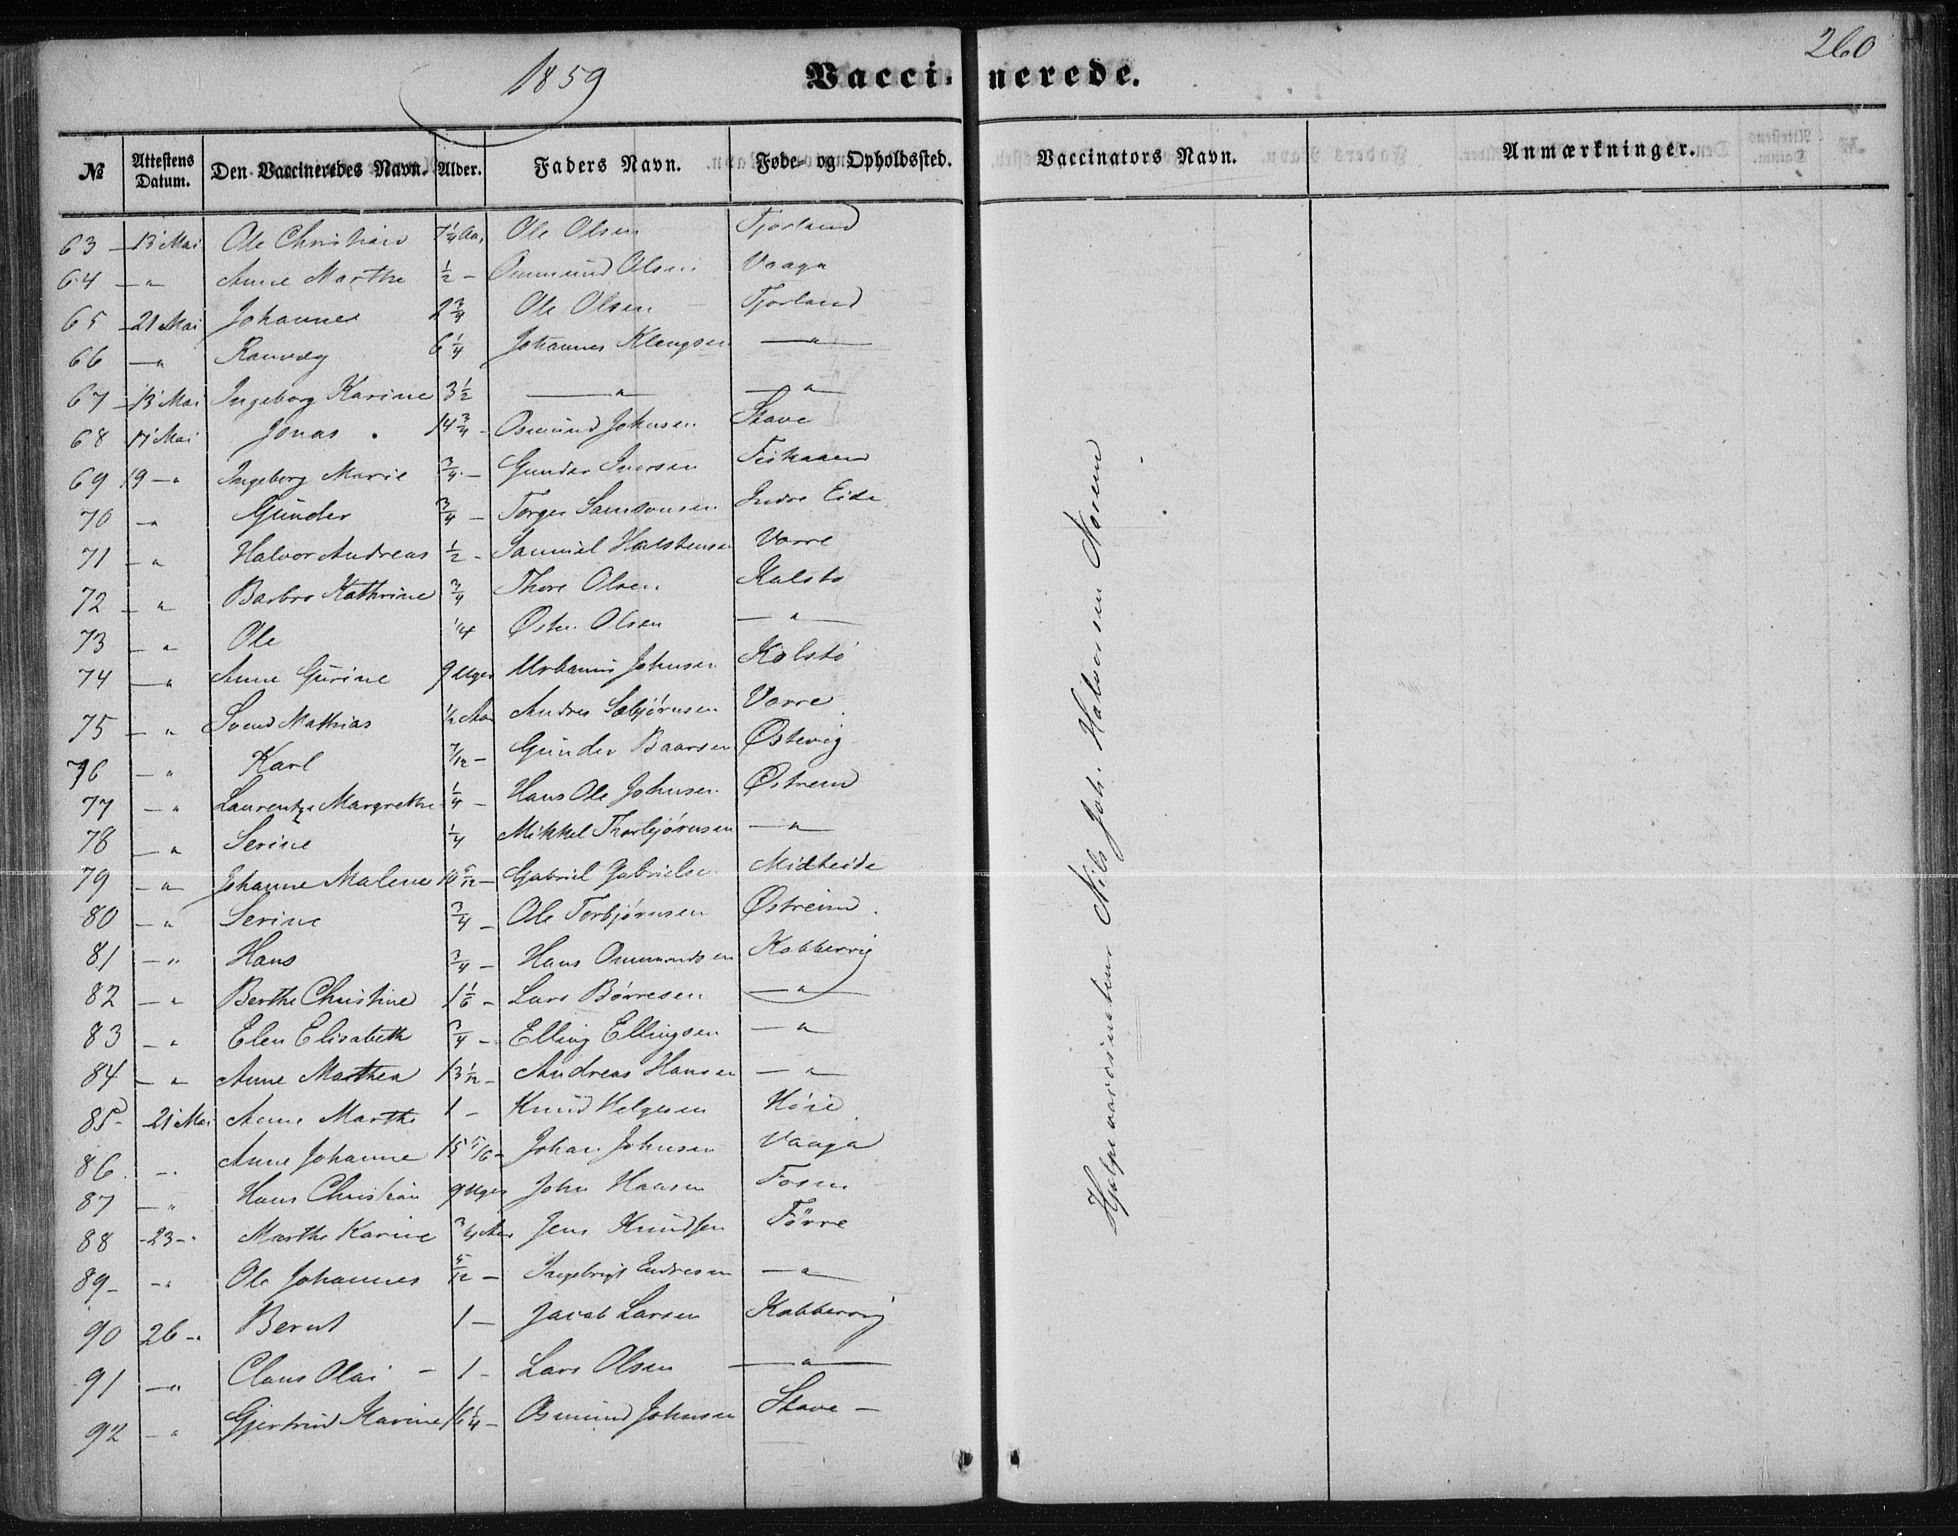 260
1859
Vaccinerede.
№ Attestens Datum. Den Vaccineredes Navn. Alder. Faders Navn. Føde- og Opholdssted. Vaccinators Navn. Anmærkninger.
63 – 13 Mai Ole Christian 7 1/4 Aar Ole Olsen Tjorland
64 – " Anne Marthe 1/2 – Ommund Olsen Vaaga
65 – 21 Mai Johannes 2 3/4 Ole Olsen – Tjorland
66 – " Ranveg 6 1/4 Johannes Klengsen — " —
67 – 13 Mai Ingeborg Karine 3 1/2 — " — — " —
68 17 Mai Jonas 14 3/4 – Osmund Johnsen Stave
69 19 – " Ingeborg Marie 3/4 – Gunder Iversen
70 – " Gunder 3/4 – Torger Samsonsen Indre Eide
71 – " Halvor Andreas 1/2 – Samuel Halstensen Vorre
72 – " Barbro Kathrine 3/4 Thore Olsen Kalstø
73 – " Ole 1/4 Østen Olsen — " —
74 – " Anne Gurine 9 Uger Urbanus Johnsen Kolstø
75 – " Svend Mathias 1/2 Aar Andres Sæbjørnsen Vorre
76 – " Karl 7/12 – Gunder Baarsen Østevig
77 – " Laurentze Margrethe 1/4 – Hans Ole Johnsen Østrem
78 – " Serine 1/4 Mikkel Thorbjørnsen — " —
79 – " Johanne Malene 10 5/12 – Gabriel Gabrielsen Midteide
80 – " Serine 3/4 – Ole Torbjørnsen Østreim
81 – " Hans 3/4 – Hans Ommundsen Kobbervig
82 – " Berthe Christine 1 1/6 – Lars Børresen — " —
83 – " Elen Elisabeth 3/4 – Elling Ellingsen — " —
84 – " Anne Marthea 13 1/12 – Andreas Hansen — " —
85 – 21 Mai Anne Marthe 1 – Knud Helgesen Høie
86 – " Anne Johanne 15 5/6 – Johan Johnsen Vaaga
87 – " Hans Christian 9 Uger John Hansen Fosen
88 – 23 – " Marthe Karine 3/4 Aar Jens Knudsen Førre
89 – – " Ole Johannes 5/12 – Ingebrigt Endresen — " —
90 26 – " Bernt 1 – Jacob Larsen Kobbervig
91 – " Claus Olai – 1 – Lars Olsen — " —
92 – " Gjertrud Karine 16 1/4 – Osmund Johnsen Stave –
Hjelpevaccinateur Nils Joh. Halvorsen Noreim